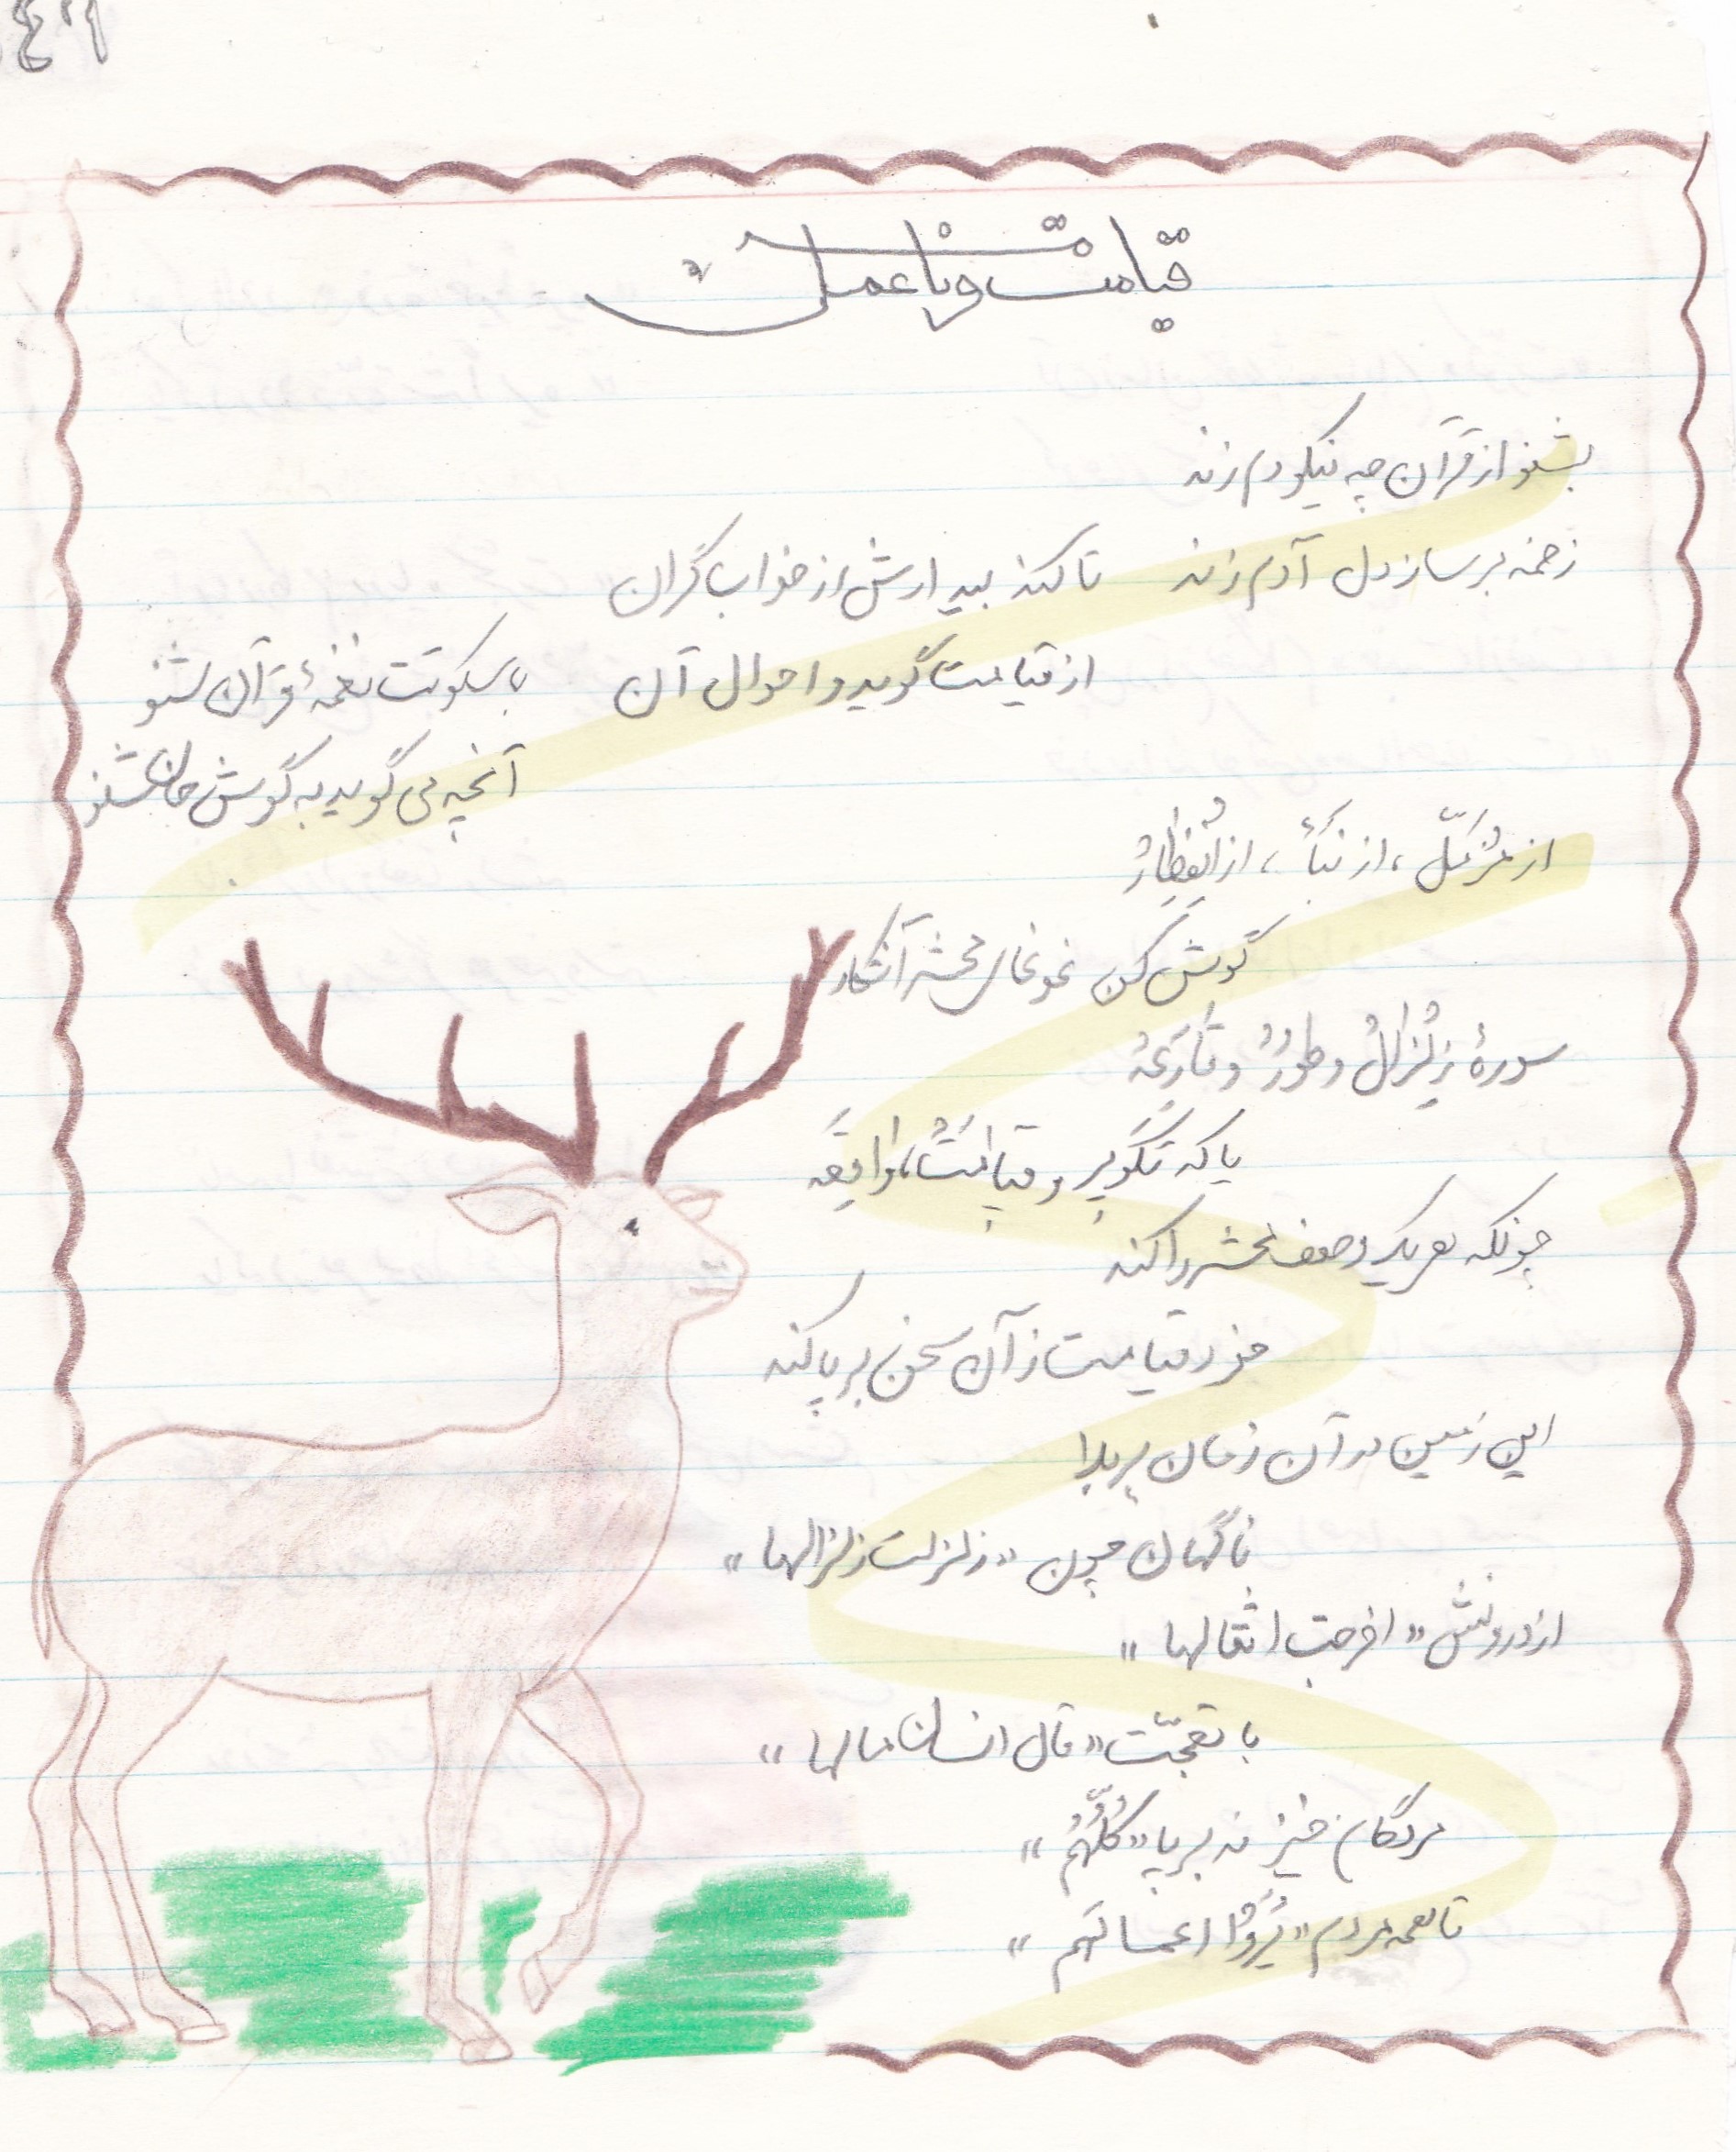 قیامت و نامه عمل
بشنو از قرآن چه نیکو دم زند
زخمه بر ساز دل آدم زند تا کند بیدارش از خواب گران
از قیامت گوید و احوال آن با سکوتت نغمهٔ قرآن شنو
آنچه می گوید به گوش جان شنو
از مُزَّمِّلّ ، از نَبَأ ، از اِنفِطارُ
گوش کن غوغای محشر آشکار
سورهٔ زِلْزالُ و طورُ و قارِعَهُ
یا که تَکْویر و قیامَتُ، واقِعَه
چونکه هر یک وصف محشر را کند
خود قیامت ز آن سخن برپا کند
این زمین در آن زمان پر بلا
ناگهان چون «زلزلت زلزالها»
از درونش «اخرجت اثقالها»
با تعجّب «قال انسان مالها»
مردگان خیزند بر پا «کُلُّهُم»
تا همه مردم «یُرَوْا اعمالهم»